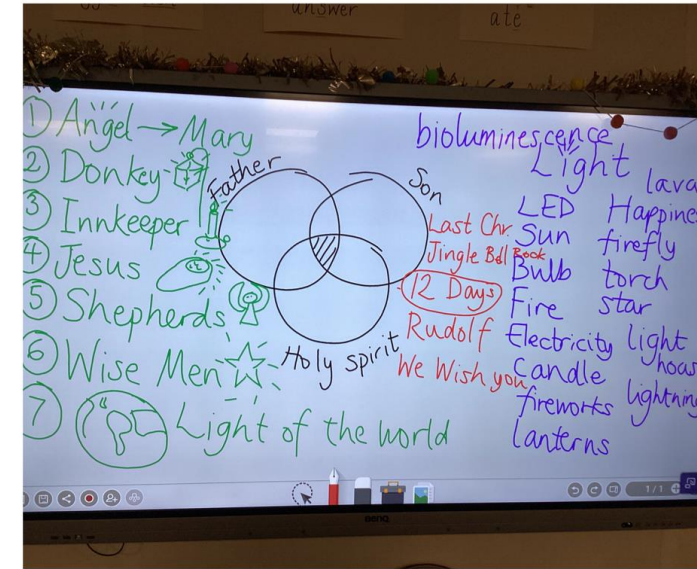 answer
ate
① Angel → Mary
② Donkey
③ Innkeeper
④ Jesus
⑤ Shepherds
⑥ Wise Men
⑦ Light of the world
Father
Son
Holy Spirit
Last Chr.
Jingle Bell Rock
12 Days
Rudolf
We Wish you
bioluminescence
Light
LED
Sun
Bulb
Fire
Electricity
Candle
fireworks
lanterns
lava
Happine
firefly
torch
star
light
hous
lightnin
1/1
BenQ